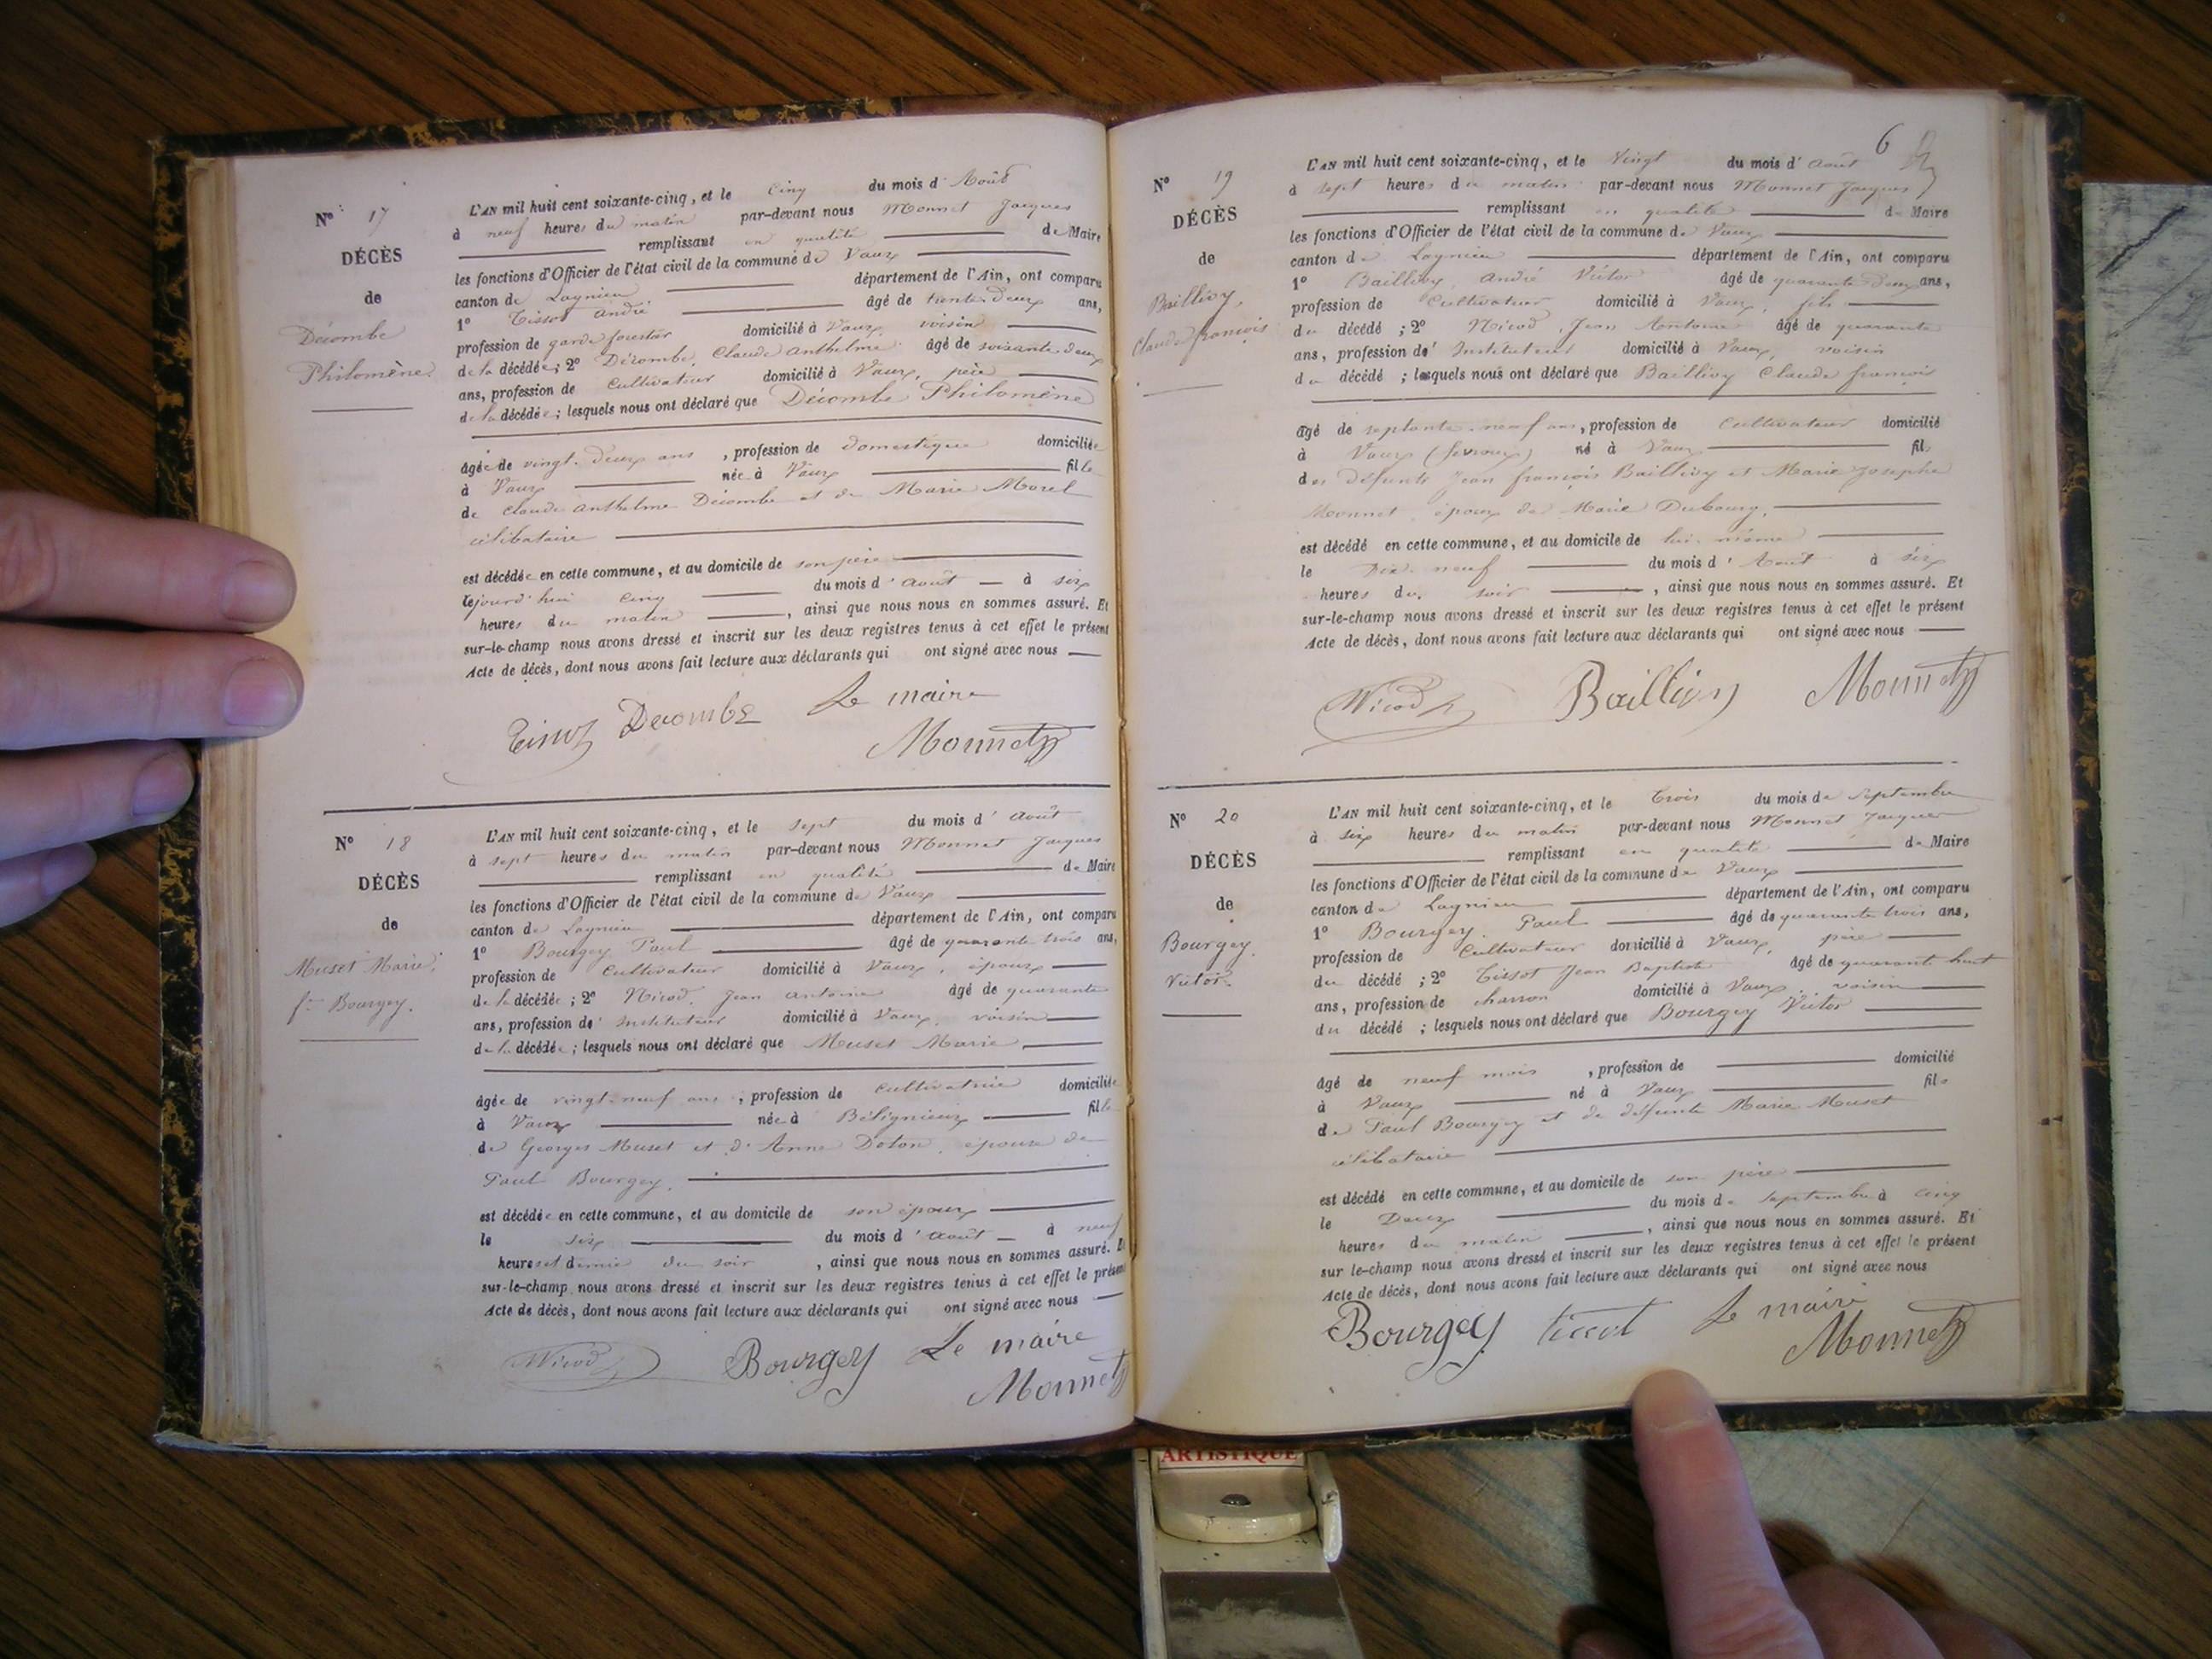 N° 17
DÉCÈS
de
Décombe
Philomène
L'AN mil huit cent soixante-cinq, et le cinq du mois d'Août
à neuf heures du matin par-devant nous Monnet Jacques
remplissant en qualité de Maire
les fonctions d'Officier de l'état civil de la commune de Vaux
canton de Lagnieu département de l'Ain, ont comparu
1° Tissot André âgé de trente-deux ans,
profession de garde forestier domicilié à Vaux, voisin
de la décédée; 2° Décombe, Claude Anthelme âgé de soixante deux
ans, profession de cultivateur domicilié à Vaux, père
de la décédée; lesquels nous ont déclaré que Décombe Philomène
âgée de vingt-deux ans, profession de domestique domiciliée
à Vaux née à Vaux fille
de Claude Anthelme Décombe et de Marie Morel
célibataire
est décédée en cette commune, et au domicile de son père
lejourd'hui cinq du mois d'Août à six
heures du matin, ainsi que nous nous en sommes assuré. Et
sur-le-champ nous avons dressé et inscrit sur les deux registres tenus à cet effet le présent
Acte de décès, dont nous avons fait lecture aux déclarants qui ont signé avec nous
Tissot Decombe Le maire
Monnet
N° 18
DÉCÈS
de
Muset Marie
fe Bourgey.
L'AN mil huit cent soixante-cinq, et le sept du mois d'Août
à sept heures du matin par-devant nous Monnet Jacques
remplissant en qualité de Maire
les fonctions d'Officier de l'état civil de la commune de Vaux
canton de Lagnieu département de l'Ain, ont comparu
1° Bourgey Paul âgé de quarante trois ans,
profession de cultivateur domicilié à Vaux, époux
de la décédée; 2° Nicod, Jean Antoine âgé de quarante
ans, profession d'Instituteur domicilié à Vaux, voisin
de la décédée; lesquels nous ont déclaré que Muset Marie
âgée de vingt-neuf ans, profession de cultivatrice domiciliée
à Vaux née à Béligneux fille
de Georges Muset et d'Anne Doton, épouse de
Paul Bourgey.
est décédée en cette commune, et au domicile de son époux
le six du mois d'Août à neuf
heures et demie du soir, ainsi que nous nous en sommes assuré. Et
sur-le-champ nous avons dressé et inscrit sur les deux registres tenus à cet effet le présent
Acte de décès, dont nous avons fait lecture aux déclarants qui ont signé avec nous
Nicod Bourgey Le maire
Monnet
6
N° 19
DÉCÈS
de
Baillivy,
Claude françois
L'AN mil huit cent soixante-cinq, et le vingt du mois d'Août
à sept heures du matin par-devant nous Monnet Jacques
remplissant en qualité de Maire
les fonctions d'Officier de l'état civil de la commune de Vaux
canton de Lagnieu département de l'Ain, ont comparu
1° Baillivy, André Victor âgé de quarante deux ans,
profession de cultivateur domicilié à Vaux, fils
du décédé; 2° Nicod, Jean Antoine âgé de quarante
ans, profession d'Instituteur domicilié à Vaux, voisin
du décédé; lesquels nous ont déclaré que Baillivy Claude françois
âgé de septante-neuf ans, profession de cultivateur domicilié
à Vaux né à Vaux fils
des défunts Jean françois Baillivy et Marie Josephe
Monnet, époux de Marie Dubourg,
est décédé en cette commune, et au domicile de lui-même
le Dix-neuf du mois d'Août à six
heures du soir, ainsi que nous nous en sommes assuré. Et
sur-le-champ nous avons dressé et inscrit sur les deux registres tenus à cet effet le présent
Acte de décès, dont nous avons fait lecture aux déclarants qui ont signé avec nous
Nicod Baillivy Monnet
N° 20
DÉCÈS
de
Bourgey
Victor
L'AN mil huit cent soixante-cinq, et le trois du mois de Septembre
à six heures du matin par-devant nous Monnet Jacques
remplissant en qualité de Maire
les fonctions d'Officier de l'état civil de la commune de Vaux
canton de Lagnieu département de l'Ain, ont comparu
1° Bourgey, Paul âgé de quarante trois ans,
profession de cultivateur domicilié à Vaux, père
du décédé; 2° Tissot Jean Baptiste âgé de quarante huit
ans, profession de charron domicilié à Vaux, voisin
du décédé; lesquels nous ont déclaré que Bourgey Victor
âgé de neuf mois, profession de domicilié
à Vaux né à Vaux fils
de Paul Bourgey et de défunte Marie Muset
célibataire
est décédé en cette commune, et au domicile de son père
le Deux du mois de Septembre à cinq
heures du matin, ainsi que nous nous en sommes assuré. Et
sur le-champ nous avons dressé et inscrit sur les deux registres tenus à cet effet le présent
Acte de décès, dont nous avons fait lecture aux déclarants qui ont signé avec nous
Bourgey tissot Le maire
Monnet
ARTISTIQUE